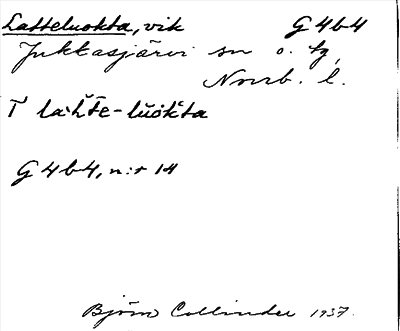 Latteluokta, vik G 4 b 4
Jukkasjärvi sn o. tg,
Norrb. l.
T la:h̆te-luŏkta
G 4 b 4, n:r 14
Björn Collinder 1937.